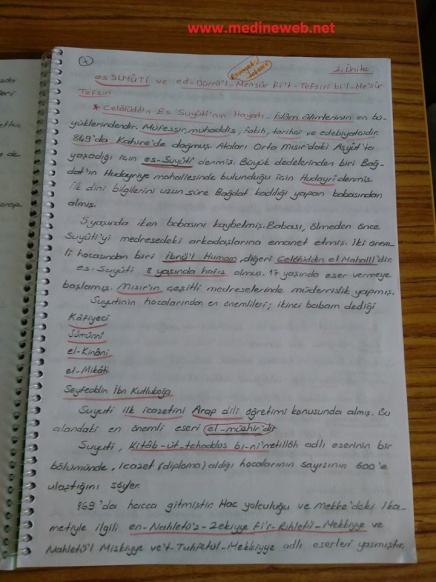 www.medineweb.net
1
Rivayet Tefsiri
2. Ünite
es SUYUTİ ve ed-Dürrü'l-Mensûr fi't-Tefsiri bi'l-Me'sûr
Tefsiri
* Celâlüddin Es Suyuti'nin Hayatı- İslâm âlimlerinin en bü-
yüklerindendir. Müfessir, muhaddis, fakih, tarihçi ve edebiyatçıdır.
849'da Kahire'de doğmuş. Ataları Orta mısır'daki Asyût'ta
yaşadığı için es-Suyuti denmiş. Büyük dedelerinden biri Bağ-
dat'ın Hudayriye mahallesinde bulunduğu için Hudayri denmiş.
İlk dini bilgilerini uzun süre Bağdat kadılığı yapan babasından
almış.
5 yaşında iken babasını kaybetmiş. Babası, ölmeden önce
Suyûti'yi medresedeki arkadaşlarına emanet etmiş. İki önem-
li hocasından biri İbnü'l Humam, diğeri Celâlüddin el Mahalli'dir.
es-Suyûti 8 yaşında hafız olmuş. 17 yaşında eser vermeye
başlamış. Mısır'ın çeşitli medreselerinde müderrislik yapmış.
Suyuti'nin hocalarından en önemlileri; ikinci babam dediği
Kâfiyeci
Şümünnî
el-Kinâni
el-Mikâti
Seyfeddin İbn Kutluboğa
Suyuti ilk icazetini Arap dili öğretimi konusunda almış. Bu
alandaki en önemli eseri el-müzhir'dir
Suyuti, Kitâb-üt-tehaddüs bi-ni'metillâh adlı eserinin bir
bölümünde, icazet (diploma) aldığı hocalarının sayısının 600'e
ulaştığını söyler.
869'da hacca gitmiştir. Hac yolculuğu ve mekke'deki ika-
metiyle ilgili en-Nahletü'z-Zekiyye fi'r-Rihleti'l-Mekkiyye ve
Nahletü'l Miskiyye ve't-Tuhfetü'l-Mekkiyye adlı eserleri yazmıştır.